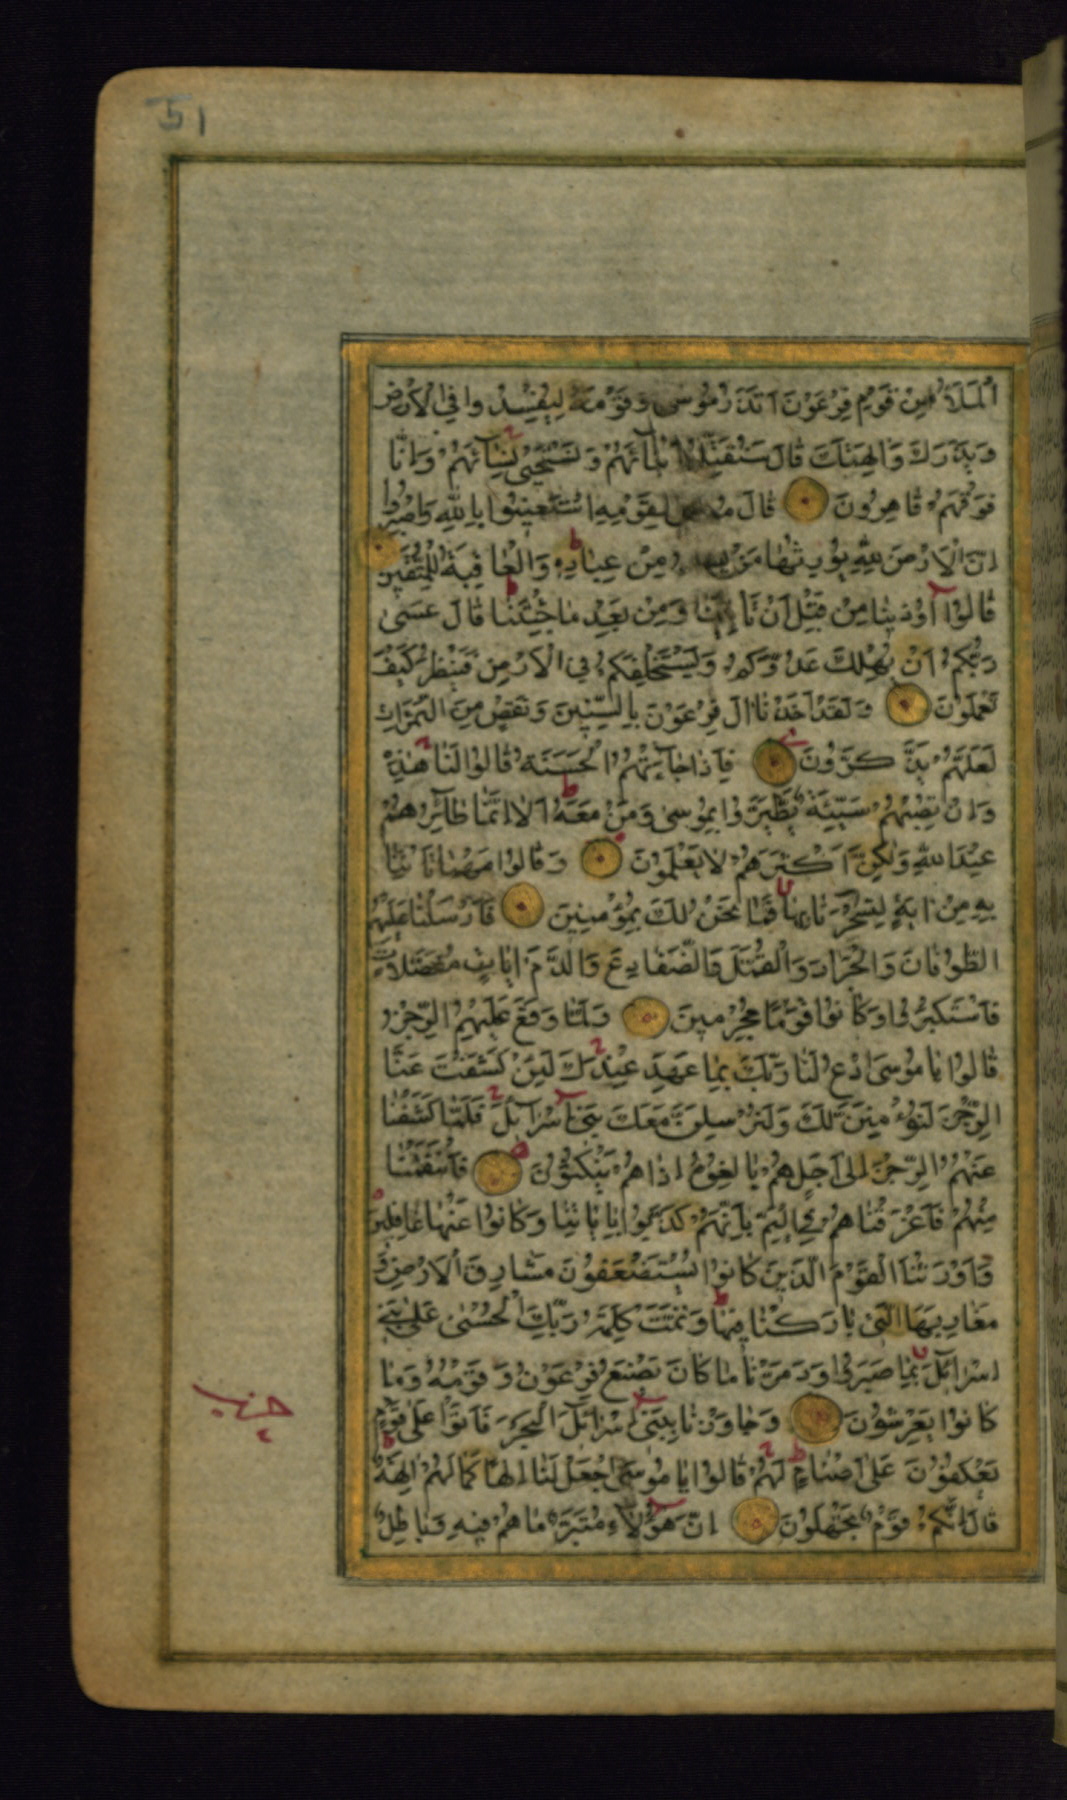 51
الْمَلَأُ مِنْ قَوْمِ فِرْعَوْنَ اَتَذَرُ مُوسٰى وَقَوْمَهُ لِيُفْسِدُوا فِي الْاَرْضِ
وَيَذَرَكَ وَاٰلِهَتَكَ قَالَ سَنُقَتِّلُ اَبْنَآئَهُمْ وَنَسْتَحْيٖى نِسَآئَهُمْ وَاِنَّا
فَوْقَهُمْ قَاهِرُونَ قَالَ مُوسٰى لِقَوْمِهِ اسْتَعٖينُوا بِاللّٰهِ وَاصْبِرُوا
اِنَّ الْاَرْضَ لِلّٰهِ يُورِثُهَا مَنْ يَشَآءُ مِنْ عِبَادِهٖ وَالْعَاقِبَةُ لِلْمُتَّقٖينَ
قَالُوا اُوذٖينَا مِنْ قَبْلِ اَنْ تَاْتِيَنَا وَمِنْ بَعْدِ مَا جِئْتَنَا قَالَ عَسٰى
رَبُّكُمْ اَنْ يُهْلِكَ عَدُوَّكُمْ وَيَسْتَخْلِفَكُمْ فِي الْاَرْضِ فَيَنْظُرَ كَيْفَ
تَعْمَلُونَ وَلَقَدْ اَخَذْنَا اٰلَ فِرْعَوْنَ بِالسِّنٖينَ وَنَقْصٍ مِنَ الثَّمَرَاتِ
لَعَلَّهُمْ يَذَّكَّرُونَ فَاِذَا جَآئَتْهُمُ الْحَسَنَةُ قَالُوا لَنَا هٰذِهٖ
وَاِنْ تُصِبْهُمْ سَيِّئَةٌ يَطَّيَّرُوا بِمُوسٰى وَمَنْ مَعَهُ اَلَا اِنَّمَا طَآئِرُهُمْ
عِنْدَ اللّٰهِ وَلٰكِنَّ اَكْثَرَهُمْ لَا يَعْلَمُونَ وَقَالُوا مَهْمَا تَاْتِنَا
بِهٖ مِنْ اٰيَةٍ لِتَسْحَرَنَا بِهَا فَمَا نَحْنُ لَكَ بِمُؤْمِنٖينَ فَاَرْسَلْنَا عَلَيْهِمُ
الطُّوفَانَ وَالْجَرَادَ وَالْقُمَّلَ وَالضَّفَادِعَ وَالدَّمَ اٰيَاتٍ مُفَصَّلَاتٍ
فَاسْتَكْبَرُوا وَكَانُوا قَوْمًا مُجْرِمٖينَ وَلَمَّا وَقَعَ عَلَيْهِمُ الرِّجْزُ
قَالُوا يَا مُوسَى ادْعُ لَنَا رَبَّكَ بِمَا عَهِدَ عِنْدَكَ لَئِنْ كَشَفْتَ عَنَّا
الرِّجْزَ لَنُؤْمِنَنَّ لَكَ وَلَنُرْسِلَنَّ مَعَكَ بَنٖى اِسْرَآئٖلَ فَلَمَّا كَشَفْنَا
عَنْهُمُ الرِّجْزَ اِلٰى اَجَلٍ هُمْ بَالِغُوهُ اِذَا هُمْ يَنْكُثُونَ فَانْتَقَمْنَا
مِنْهُمْ فَاَغْرَقْنَاهُمْ فِي الْيَمِّ بِاَنَّهُمْ كَذَّبُوا بِاٰيَاتِنَا وَكَانُوا عَنْهَا غَافِلٖينَ
وَاَوْرَثْنَا الْقَوْمَ الَّذٖينَ كَانُوا يُسْتَضْعَفُونَ مَشَارِقَ الْاَرْضِ وَ
مَغَارِبَهَا الَّتٖى بَارَكْنَا فٖيهَا وَتَمَّتْ كَلِمَةُ رَبِّكَ الْحُسْنٰى عَلٰى بَنٖى
اِسْرَآئٖلَ بِمَا صَبَرُوا وَدَمَّرْنَا مَا كَانَ يَصْنَعُ فِرْعَوْنُ وَقَوْمُهُ وَمَا
كَانُوا يَعْرِشُونَ وَجَاوَزْنَا بِبَنٖى اِسْرَآئٖلَ الْبَحْرَ فَاَتَوْا عَلٰى قَوْمٍ
يَعْكُفُونَ عَلٰى اَصْنَامٍ لَهُمْ قَالُوا يَا مُوسَى اجْعَلْ لَنَا اِلٰهًا كَمَا لَهُمْ اٰلِهَةٌ
قَالَ اِنَّكُمْ قَوْمٌ تَجْهَلُونَ اِنَّ هٰؤُلَآءِ مُتَبَّرٌ مَا هُمْ فٖيهِ وَبَاطِلٌ
حزب